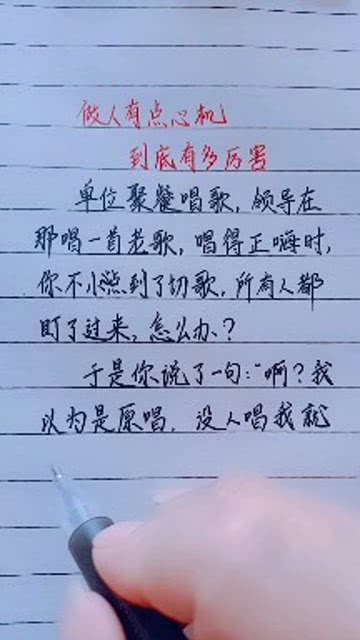 做人有点心机
到底有多厉害
单位聚餐唱歌，领导在
那唱一首老歌，唱得正嗨时，
你不小点到了切歌，所有人都
盯了过来，怎么办？
于是你说了一句：“啊？我
以为是原唱，没人唱我就